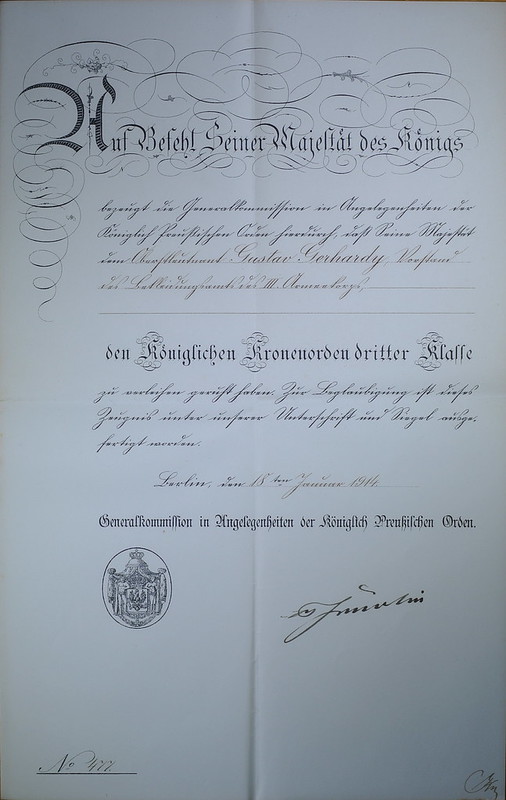 Auf Befehl Seiner Majestät des Königs
bezeugt die Generalkommission in Angelegenheiten der
Königlich Preußischen Orden hierdurch, daß Seine Majestät
dem Oberstleutnant Gustav Gerhardy, Vorstand
des Bekleidungsamts des III. Armeekorps,
den Königlichen Kronenorden dritter Klasse
zu verleihen geruht haben. Zur Beglaubigung ist dieses
Zeugnis unter unserer Unterschrift und Siegel ausge-
fertigt worden.
Berlin, den 18ten Januar 1914.
Generalkommission in Angelegenheiten der Königlich Preußischen Orden.
No 477.